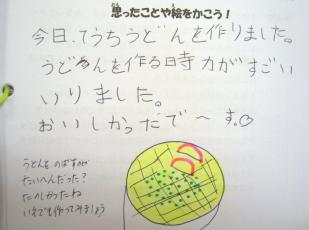 思ったことや絵をかこう!
今日、てうちうどんを作りました。
うどんを作る時力がすごい
いりました。
おいしかっだで〜す。
うどんをのばすのが
たいへんだった?
たのしかったね
いえでも作ってみましょう